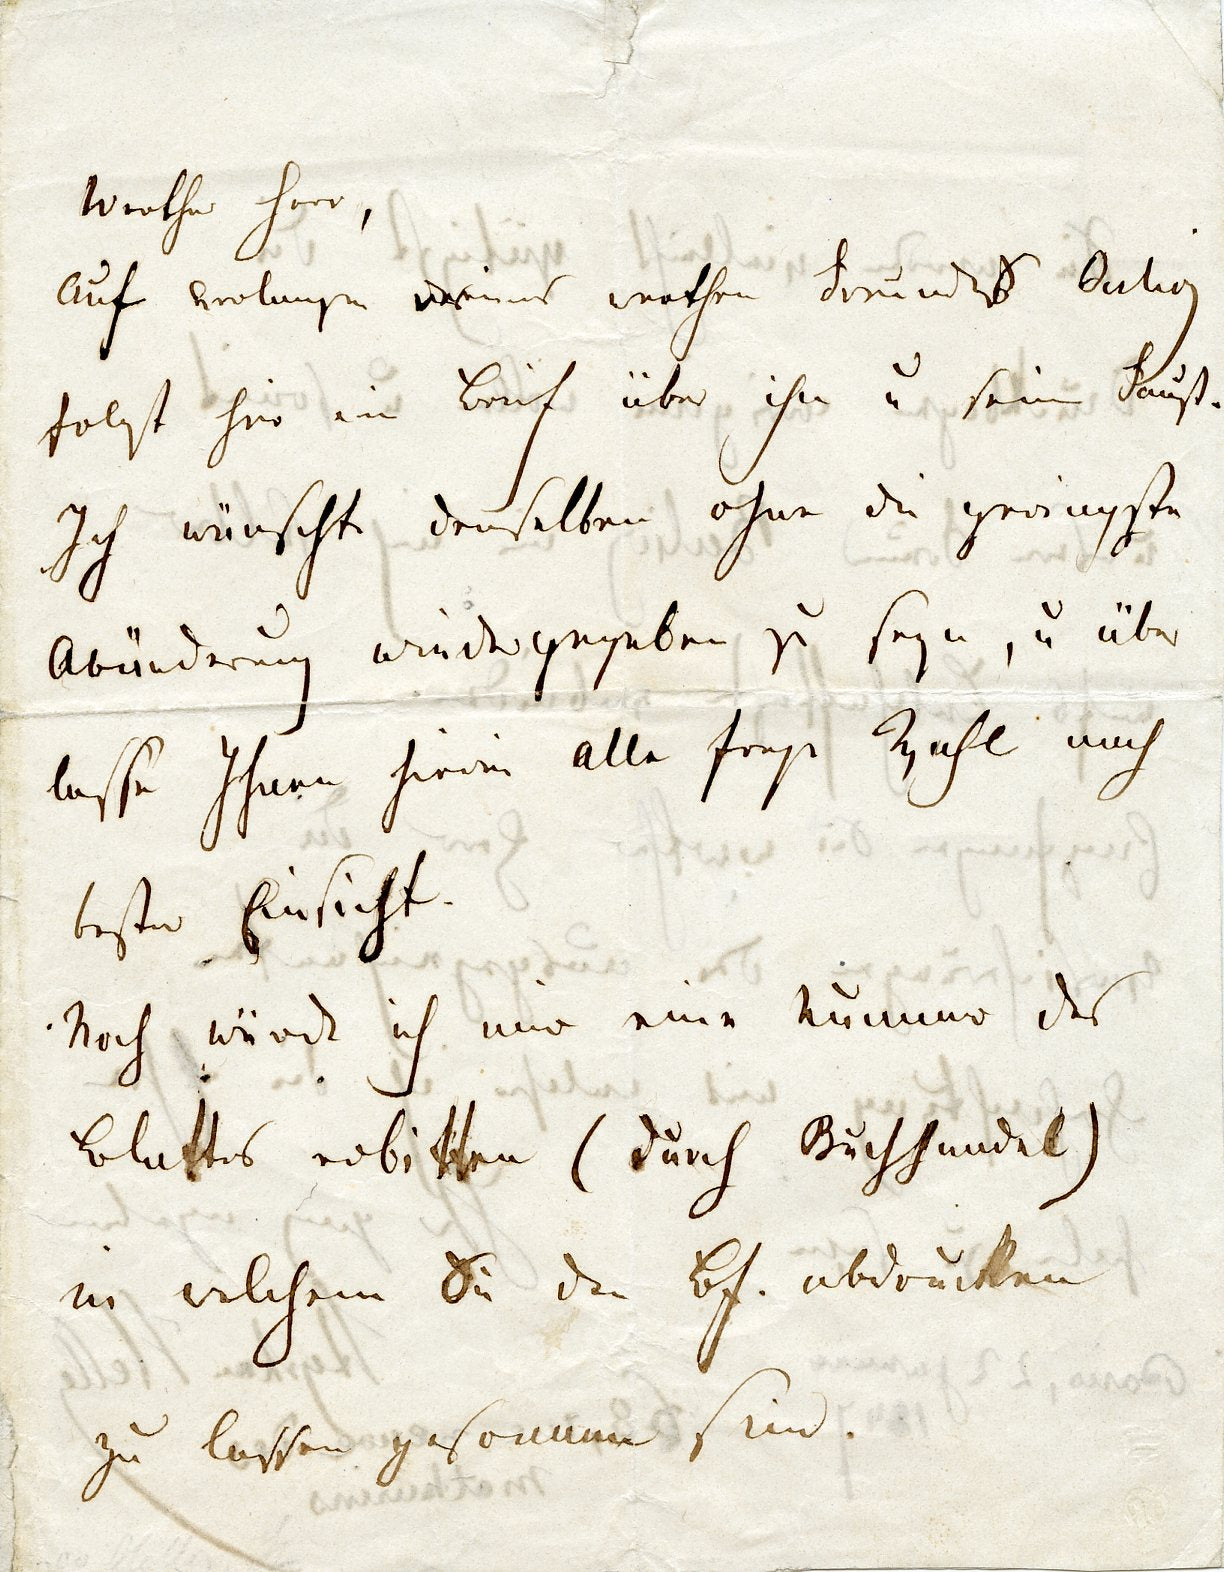 Werther Herr,
Auf Verlangen meines werthen Freundes
folgt hier ein Brief über ihn u seine Faust.
Ich wünschte denselben ohne die geringste
Abänderung wiedergegeben zu seyn, u über
lasse Ihnen hierin alle freye Wahl nach
bester Einsicht.
Noch würde ich mir eine Nummer des
Blattes erbitten (durch Buchhandel)
in welchem Sie den Bf. abdrucken
zu lassen gesonnen sind.